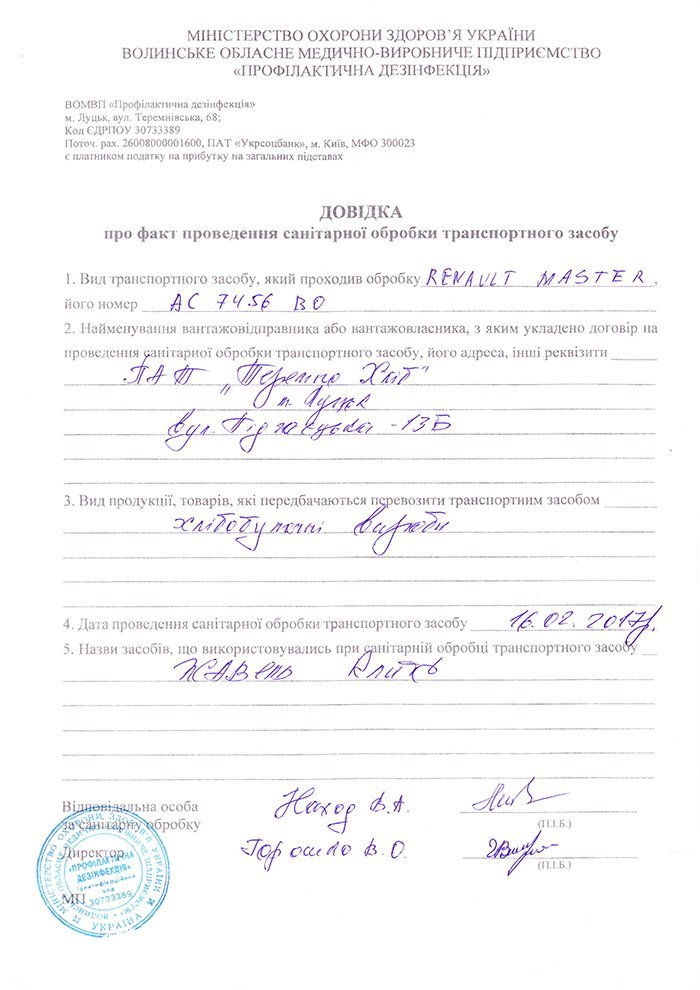 МІНІСТЕРСТВО ОХОРОНИ ЗДОРОВ'Я УКРАЇНИ
ВОЛИНСЬКЕ ОБЛАСНЕ МЕДИЧНО-ВИРОБНИЧЕ ПІДПРИЄМСТВО
«ПРОФІЛАКТИЧНА ДЕЗІНФЕКЦІЯ»
ВОМВП «Профілактична дезінфекція»
м. Луцьк, вул. Теремнівська, 68;
Код ЄДРПОУ 30733389
Поточ. рах. 26008000001600, ПАТ «Укрсоцбанк», м. Київ, МФО 300023
є платником податку на прибутку на загальних підставах
ДОВІДКА
про факт проведення санітарної обробки транспортного засобу
1. Вид транспортного засобу, який проходив обробку RENAULT MASTER,
його номер АС 7456 ВО
2. Найменування вантажовідправника або вантажовласника, з яким укладено договір на
проведення санітарної обробки транспортного засобу, його адреса, інші реквізити
ПАТ „Теремно Хліб"
м. Луцьк
вул. Підгаєцька - 13Б
3. Вид продукції, товарів, які передбачаються перевозити транспортним засобом
хлібобулочні вироби
4. Дата проведення санітарної обробки транспортного засобу 16.02.2017р.
5. Назви засобів, що використовувались при санітарній обробці транспортного засобу
Жавель Клейд
Відповідальна особа
за санітарну обробку
Наход В.А.
(П.І.Б.)
Директор
В.О.
(П.І.Б.)
МП
МІНІСТЕРСТВО ОХОРОНИ ЗДОРОВ'Я УКРАЇНИ
«ПРОФІЛАКТИЧНА
ДЕЗІНФЕКЦІЯ»
ідентифікаційний
код
30733389
УКРАЇНА